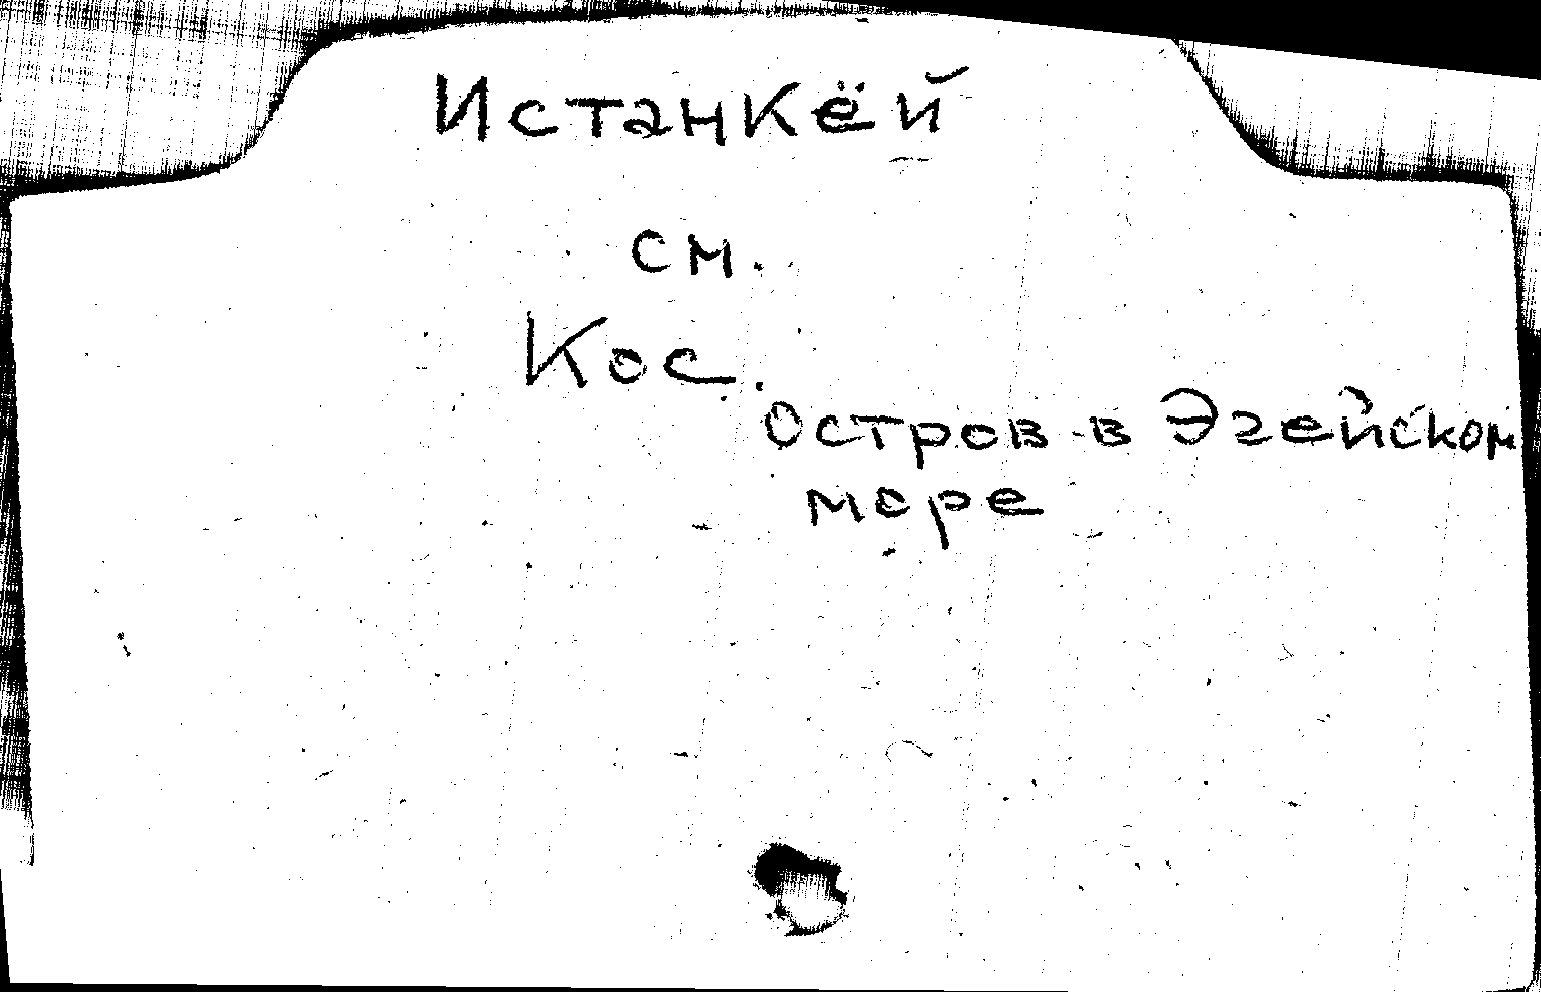 Истанкёй
см.
Кос.
Остров в Эгейском
море